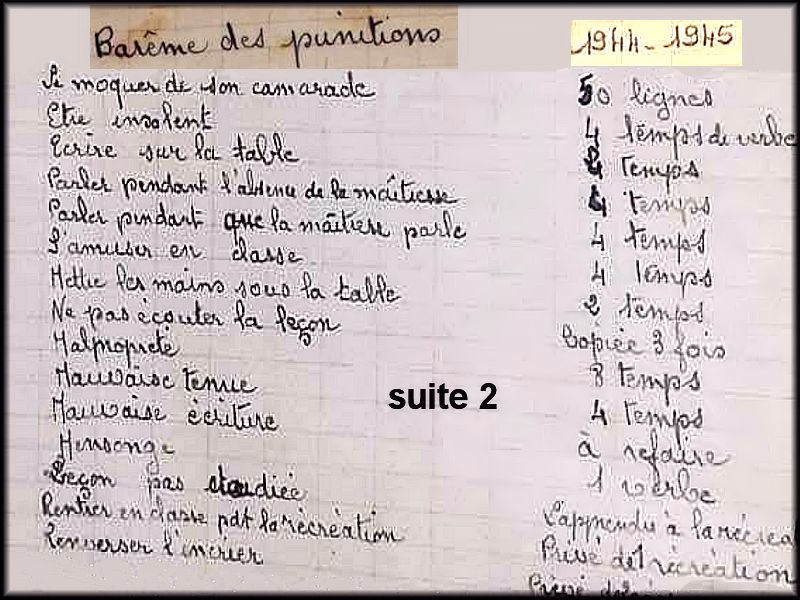 Barême des punitions 1944-1945
Se moquer de son camarade 50 lignes
Etre insolent 4 temps de verbe
Ecrire sur la table 4 temps
Parler pendant l'absence de la maîtresse 4 temps
Parler pendant que la maîtresse parle 4 temps
S'amuser en classe 4 temps
Mettre les mains sous la table 2 temps
Ne pas écouter la leçon Copiée 3 fois
Malpropreté 3 temps
Mauvaise tenue 4 temps
Mauvaise écriture à refaire
Mensonge 1 verbe
Leçon pas étudiée L'apprendre à la récréa
Rentrer en classe pdt la récréation Privé de récréation
Renverser l'encrier Privé de
suite 2